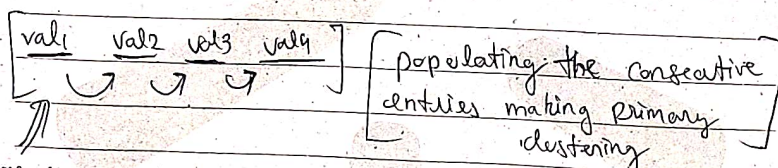 [val1 val2 val3 val4]
[populating the conseative
entries making primary
clustering]